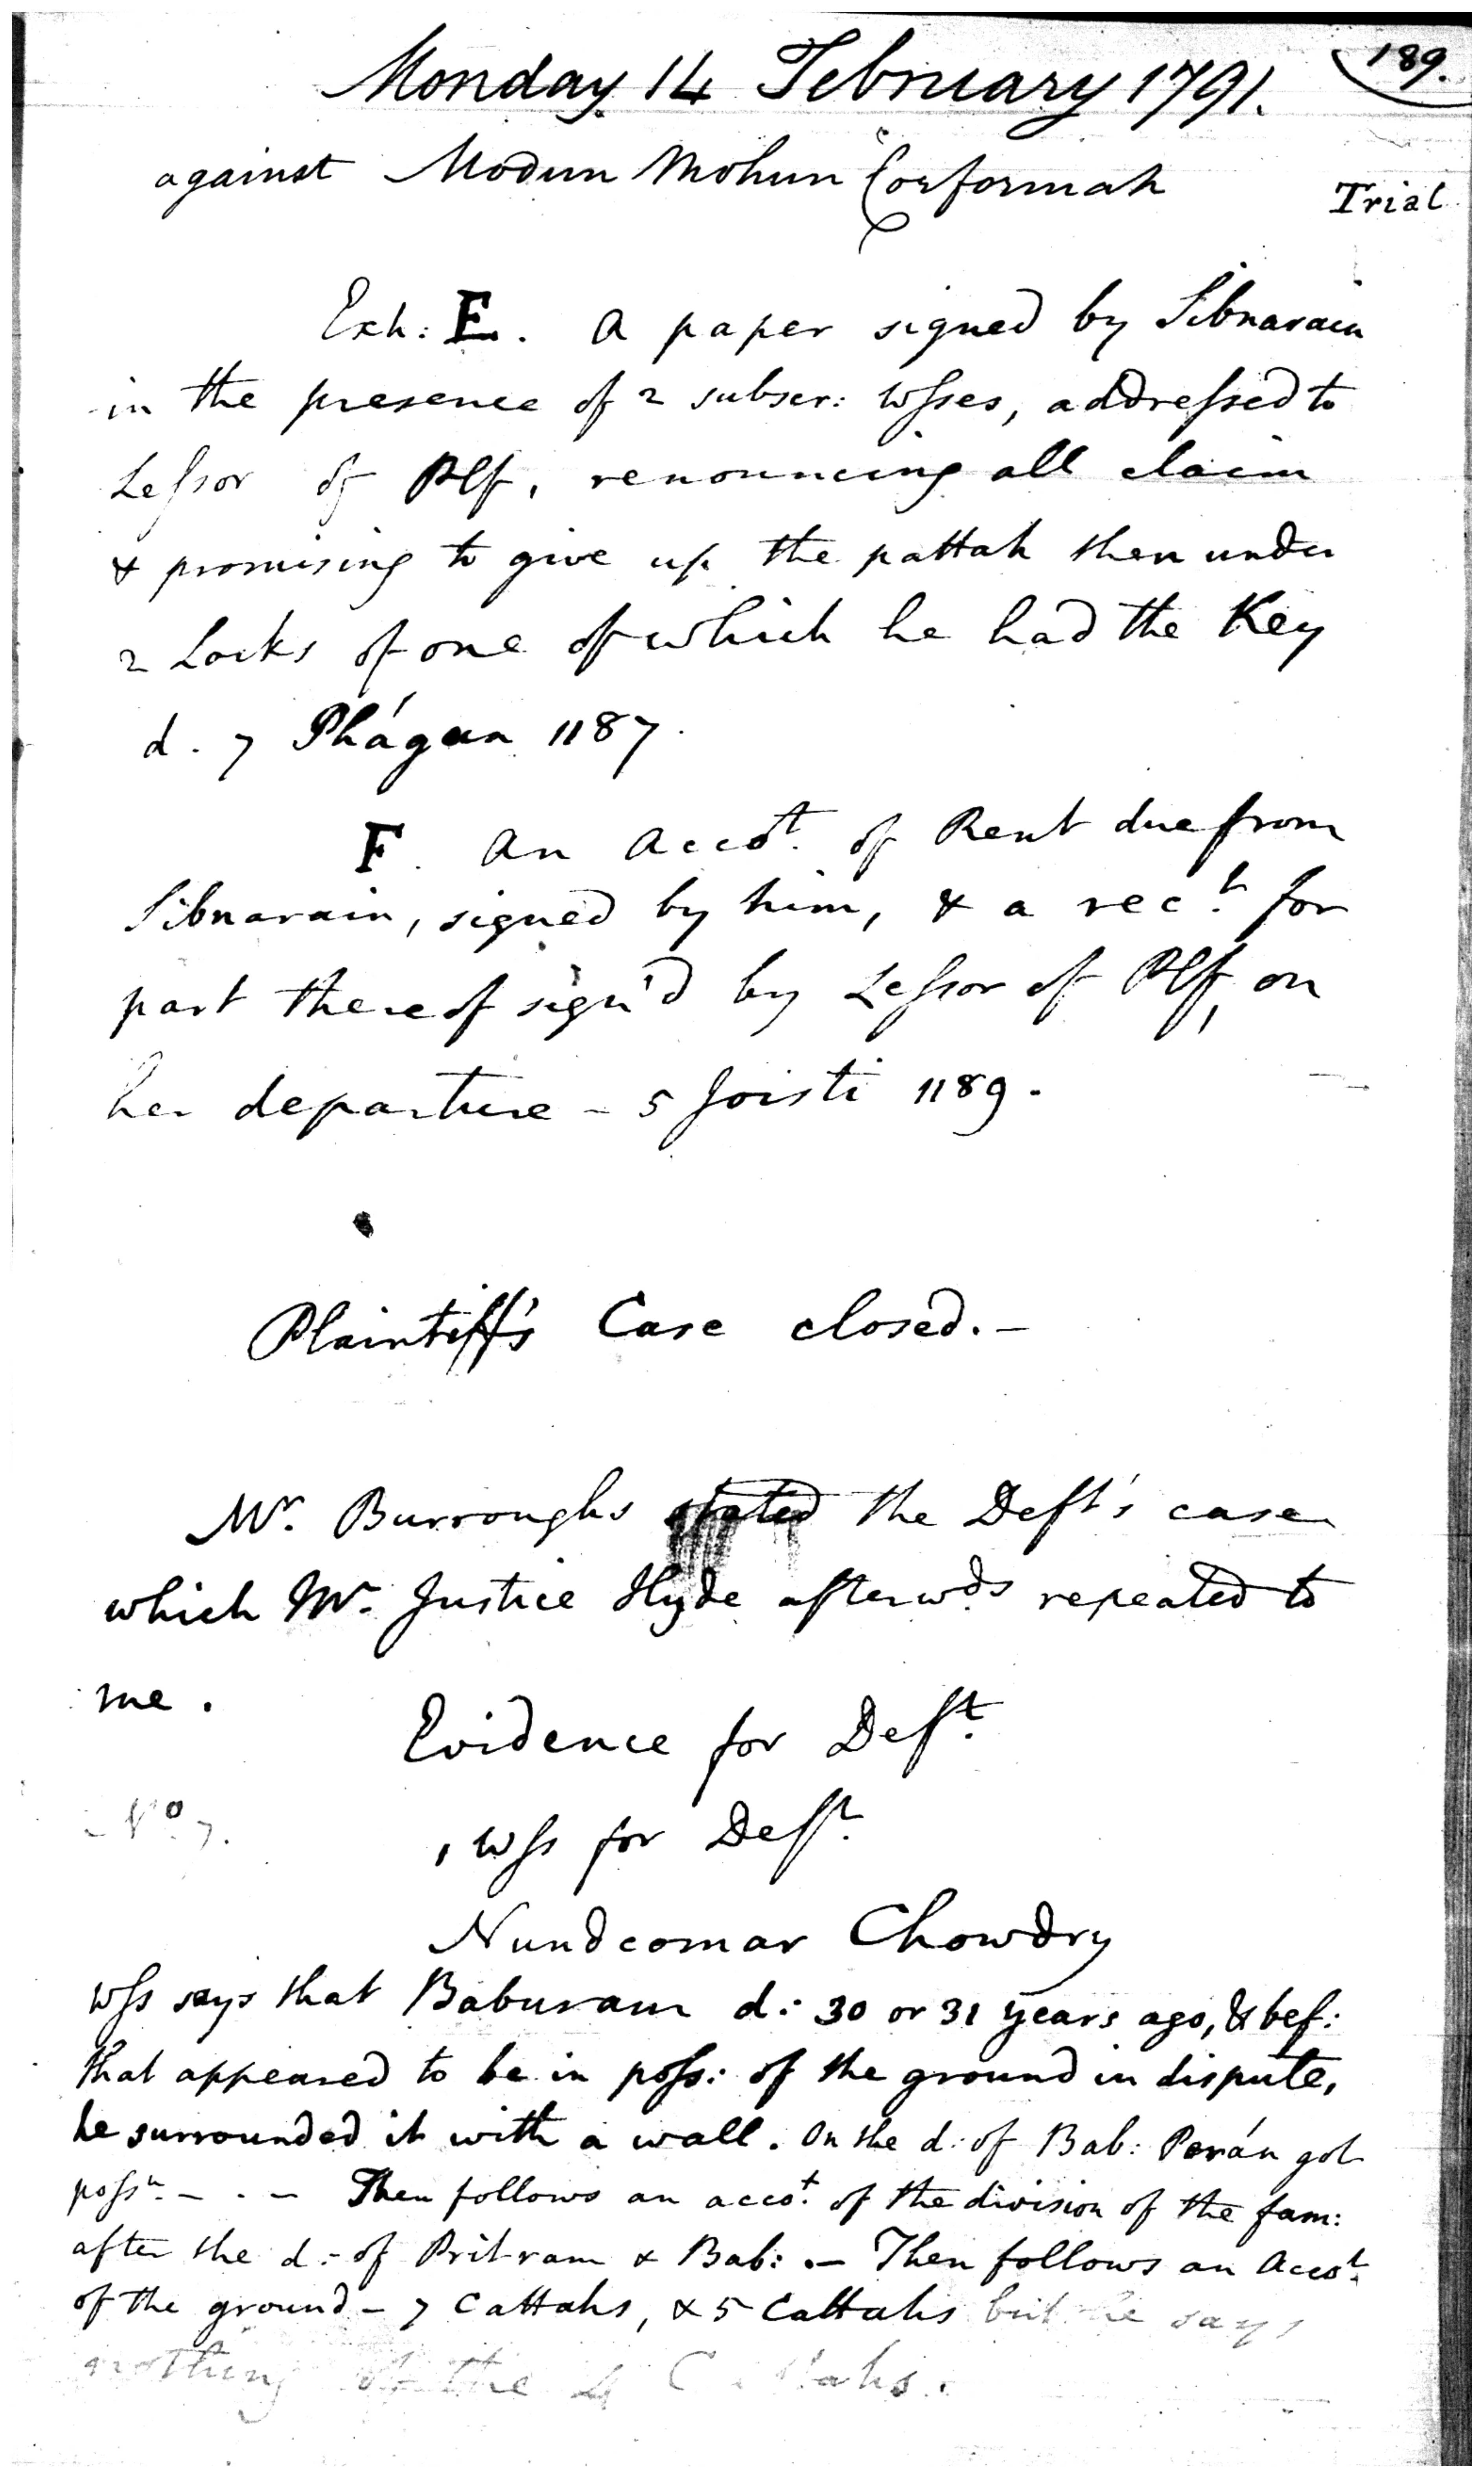 189.
Monday 14 February 1791.
against Modun Mohun Corformah
Trial
Exh: E. A paper signed by Sibnarain
in the presence of 2 subscr: Wſses, addreſsed to
Leſsor of Plf, renouncing all claim
& promising to give up the pattah then under
2 Locks of one of which he had the Key
d. 7 Phágun 1187.
F. An Accot. of Rent due from
Sibnarain, signed by him, & a rect. for
part thereof sign'd by Leſsor of Plf, on
her departure - 5 Joisti 1189.
Plaintiff's Case closed. -
Mr. Burroughs stated the Deft's case
which Mr. Justice Hyde afterwds repeated to
me.
Evidence for Deft.
No. 7.
1 Wſs for Deft.
Nundcomar Chowdry
Wſs says that Baburam d: 30 or 31 years ago, & bef:
that appeared to be in poſs: of the ground in dispute,
he surrounded it with a wall. On the d: of Bab: Perán got
poſsn. - . - Then follows an accot. of the division of the fam:
after the d: of Pritram & Bab: . - Then follows an Accot.
of the ground - 7 Cattahs, & 5 Cattahs but he says
nothing of the 4 Cattahs.